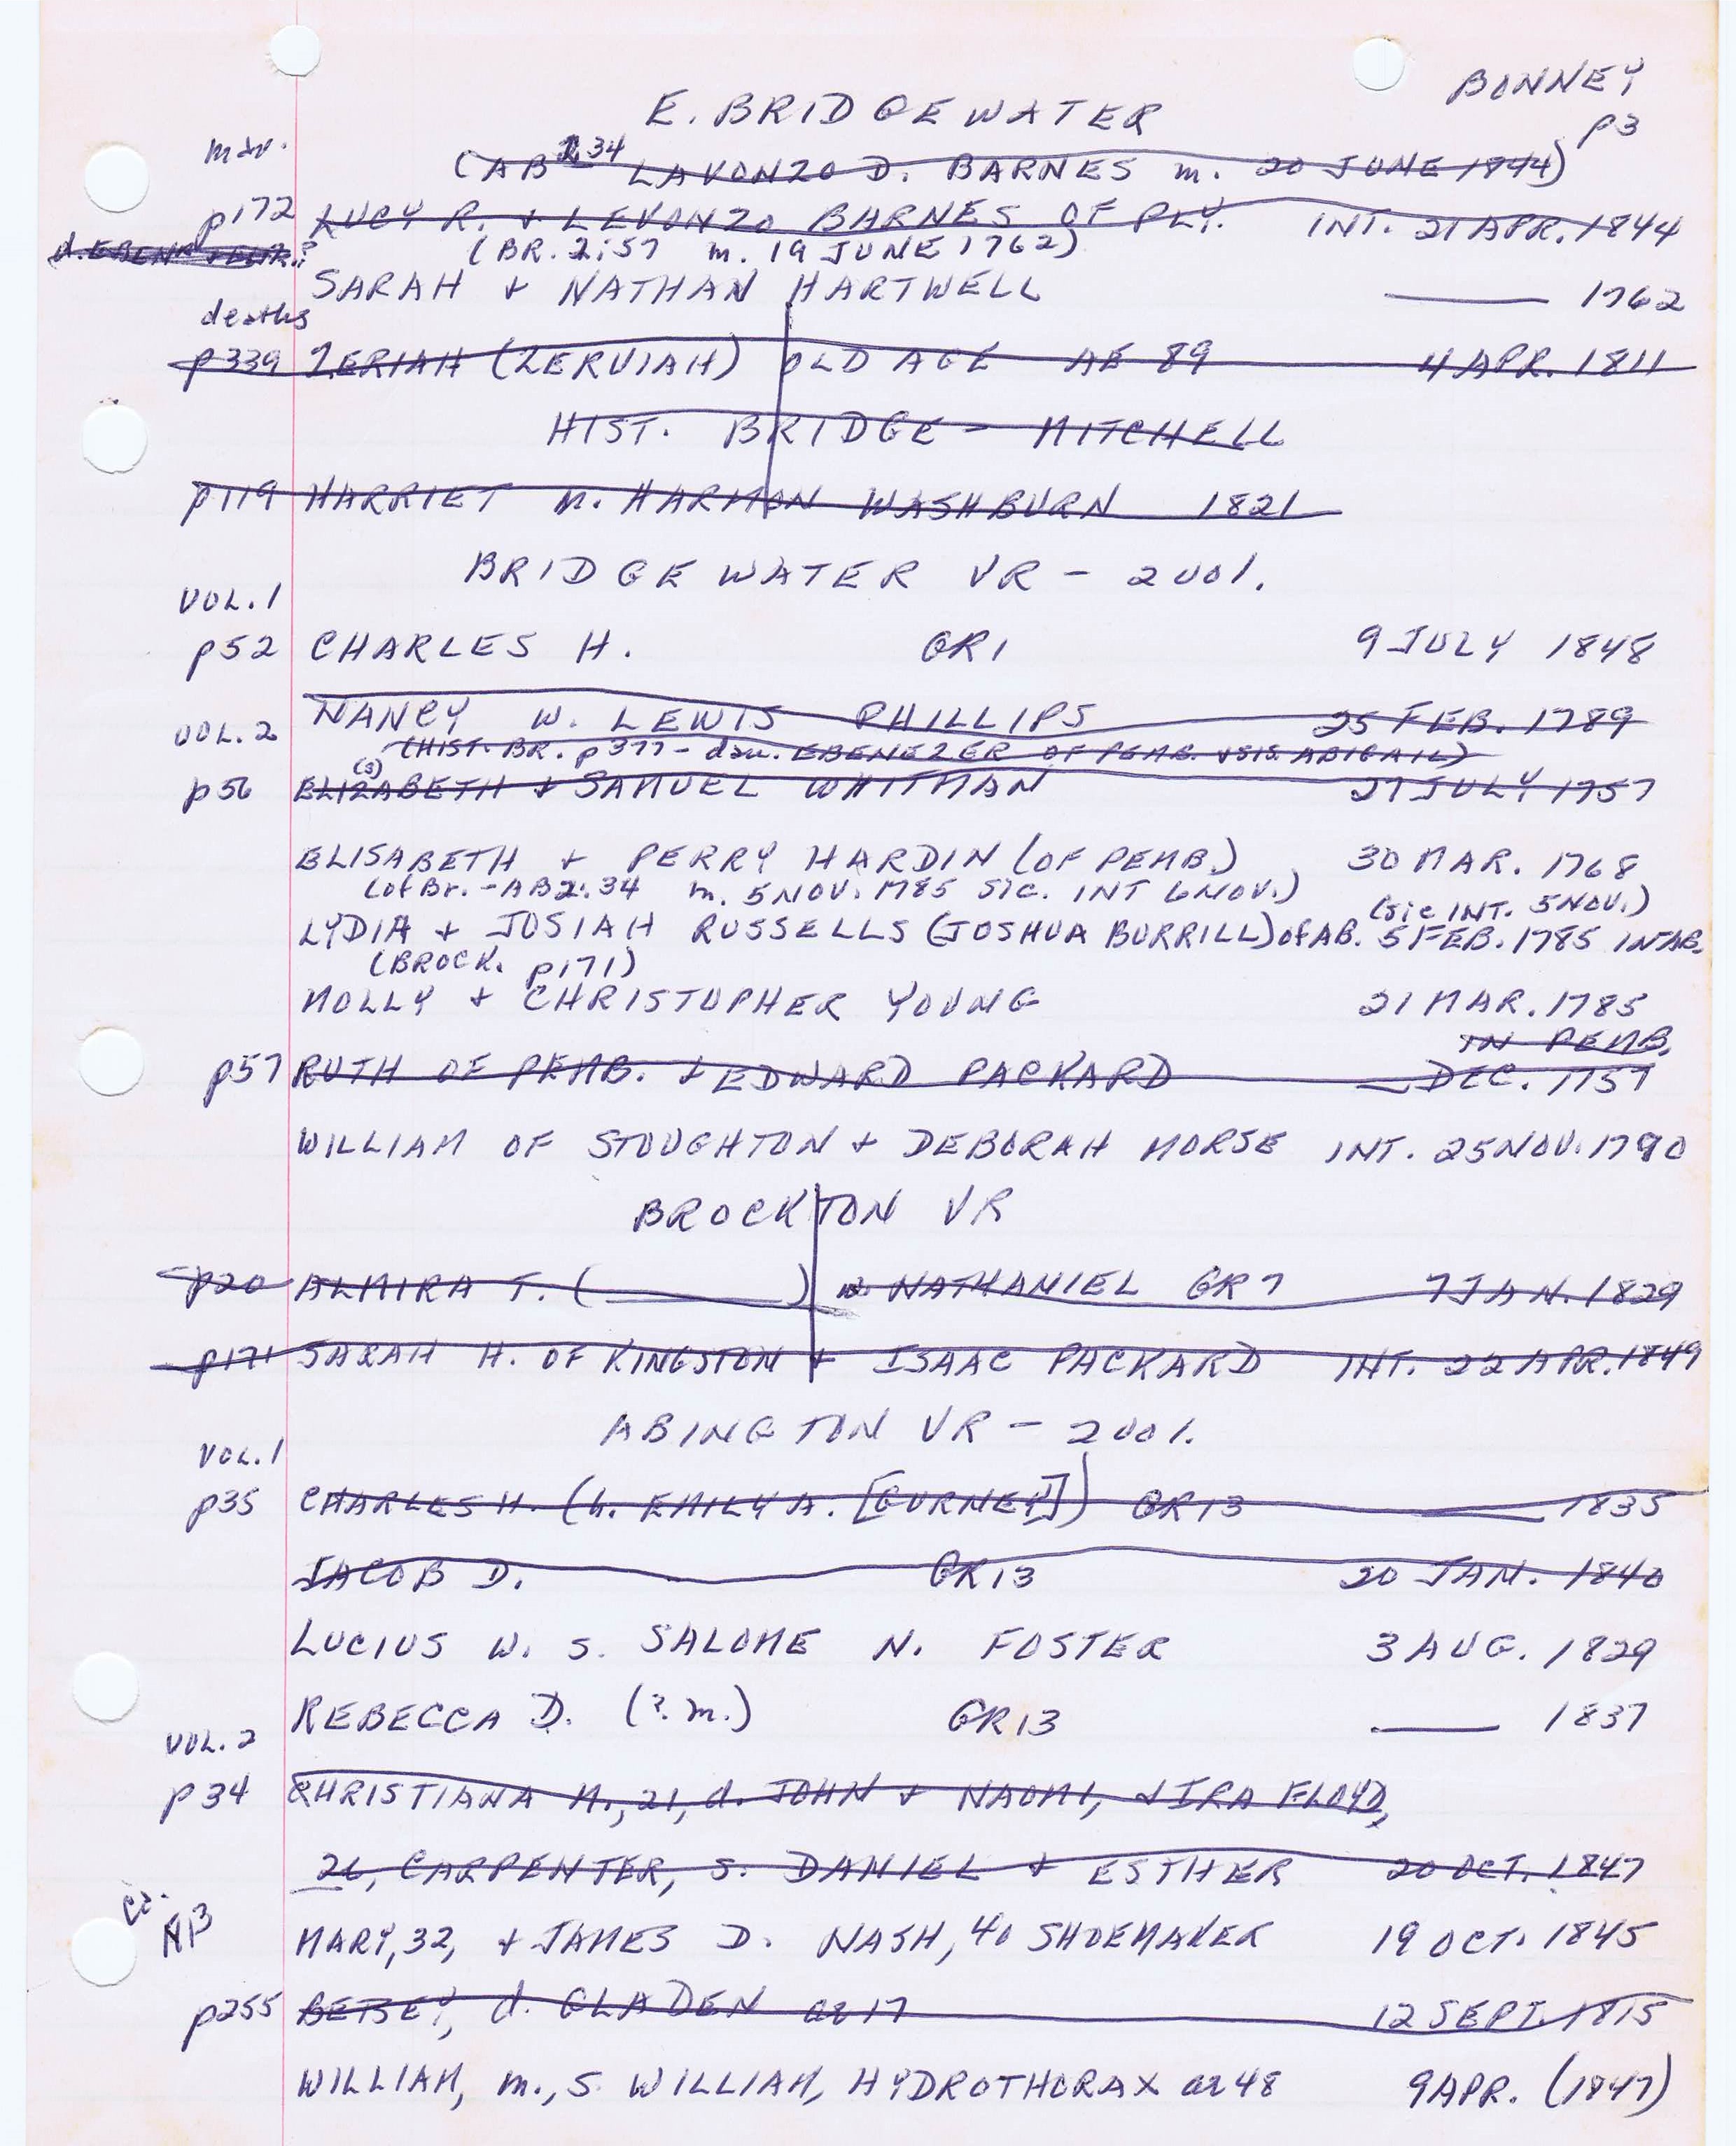 BONNEY
p3
E. BRIDGEWATER
mar.
(AB 2:34 LAVONZO D. BARNES m. 20 JUNE 1844)
p172 LUCY R. + LEVONZO BARNES OF PLY. INT. 21 APR. 1844
(BR. 2:57 m. 19 JUNE 1762)
SARAH + NATHAN HARTWELL —— 1762
deaths
p339 ZERIAH (ZERVIAH) OLD AGE AE 89 4 APR. 1811
HIST. BRIDGE - MITCHELL
p119 HARRIET m. HARMON WASHBURN 1821
BRIDGEWATER VR - 2001.
VOL. 1
p52 CHARLES H. GR1 9 JULY 1848
NANCY W. LEWIS PHILLIPS 25 FEB. 1789
VOL. 2
(HIST. BR. p377 - dau. EBENEZER OF PEMB. + SIS. ABIGAIL)
(s)
p56 ELIZABETH + SAMUEL WHITMAN 27 JULY 1757
ELISABETH + PERRY HARDIN (OF PEMB.) 30 MAR. 1768
(of Br. - AB 2:34 m. 5 NOV. 1785 SIC. INT 6 NOV.) (sic INT. 5 NOV.)
LYDIA + JOSIAH RUSSELLS (JOSHUA BURRILL) of AB. 5 FEB. 1785 IN AB.
(BROCK. p171)
MOLLY + CHRISTOPHER YOUNG 21 MAR. 1785
IN PEMB.
p57 RUTH OF PEMB. + EDWARD PACKARD — DEC. 1757
WILLIAM OF STOUGHTON + DEBORAH MORSE INT. 25 NOV. 1790
BROCKTON VR
p20 ALMIRA T. (______) w. NATHANIEL GR7 7 JAN. 1829
p171 SARAH H. OF KINGSTON + ISAAC PACKARD INT. 22 APR. 1849
ABINGTON VR - 2001.
VOL. 1
p35 CHARLES H. (h. EMILY A. [GURNEY]) GR13 —— 1835
JACOB D. GR13 20 JAN. 1840
LUCIUS W. S. SALOME N. FOSTER 3 AUG. 1829
REBECCA D. (?m.) GR13 —— 1837
VOL. 2
p34 CHRISTIANA M., 21, d. JOHN + NAOMI, + IRA FLOYD,
26, CARPENTER, S. DANIEL + ESTHER 20 OCT. 1847
MARY, 32, + JAMES D. NASH, 40 SHOEMAKER 19 OCT. 1845
p255 BETSEY, d. OLADEN ae 17 12 SEPT. 1815
WILLIAM, m., S. WILLIAM, HYDROTHORAX ae 48 9 APR. (1847)